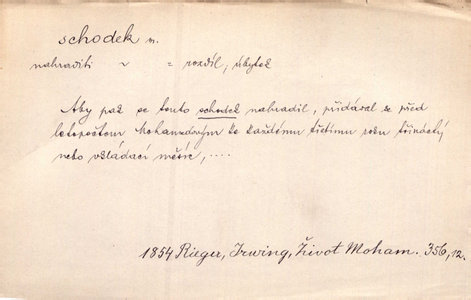 schodek m.
nahraditi ~ = rozdíl, úbytek
Aby pak se tento schodek nahradil, přidával se před
letopočtem Mohamedovým ke každému třetímu roku třináctý
nebo vkládací měsíc, ....
1854 Rieger, Irwing, Život Moham. 356,12.